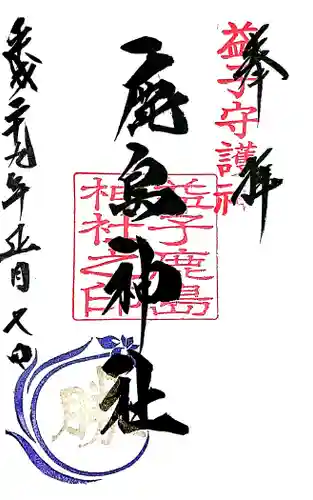 奉拝
益子守護神
鹿島神社
益子鹿島
神社之印
勝
平成二十九年正月八日